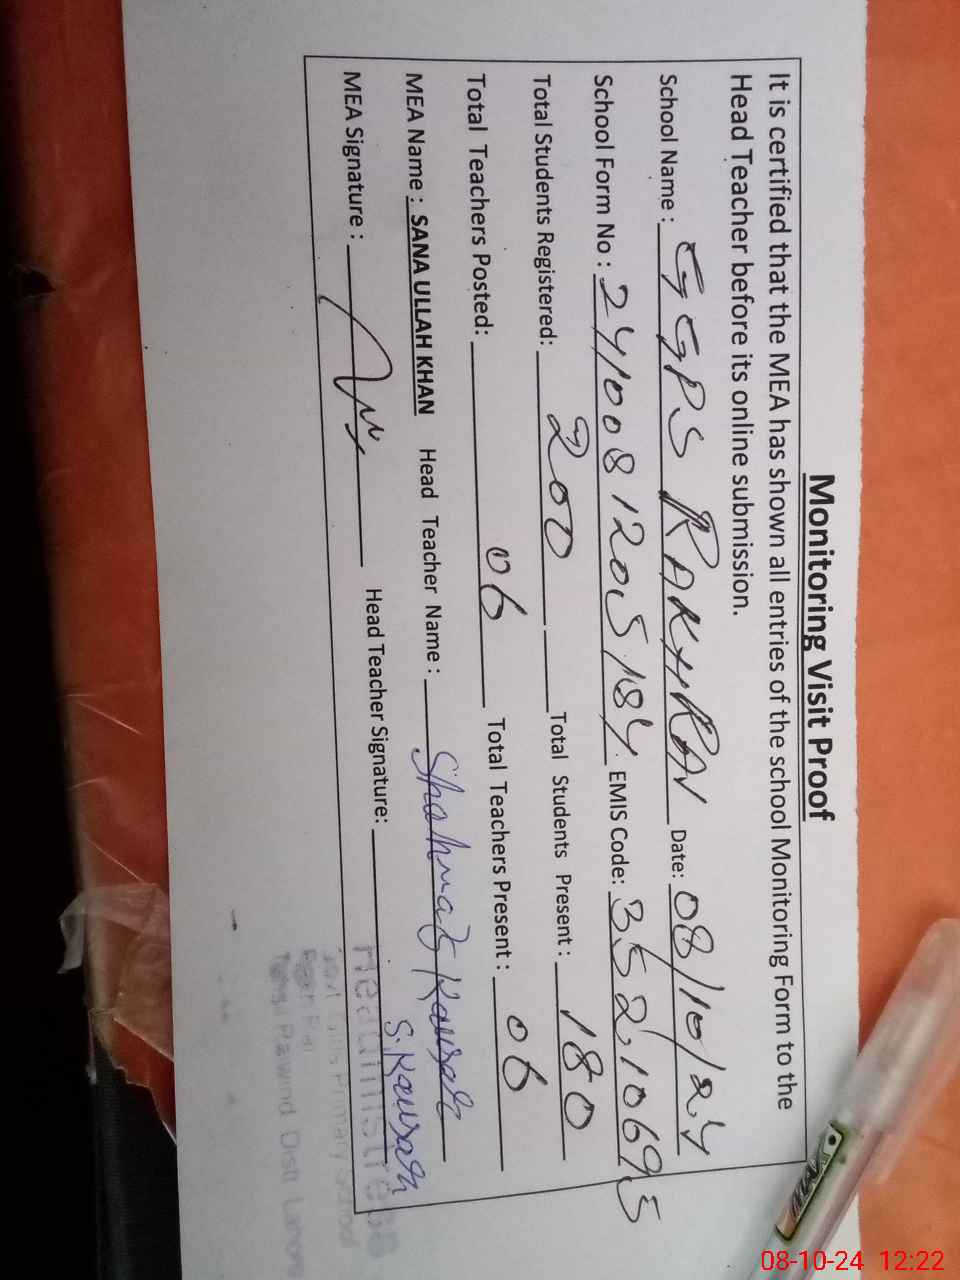 Monitoring Visit Proof
It is certified that the MEA has shown all entries of the school Monitoring Form to the
Head Teacher before its online submission.
School Name : GGPS Date: 08/10/24
School Form No : 2410081205184 EMIS Code: 35210695
Total Students Registered: 200 Total Students Present : 180
Total Teachers Posted: 06 Total Teachers Present : 06
MEA Name : SANA ULLAH KHAN Head Teacher Name : Shahnaz Kausar
MEA Signature : Head Teacher Signature: S. Kausar
Headmistress
Govt Girls Primary School
Tehsil Raiwind Distt Lahore
08-10-24 12:22